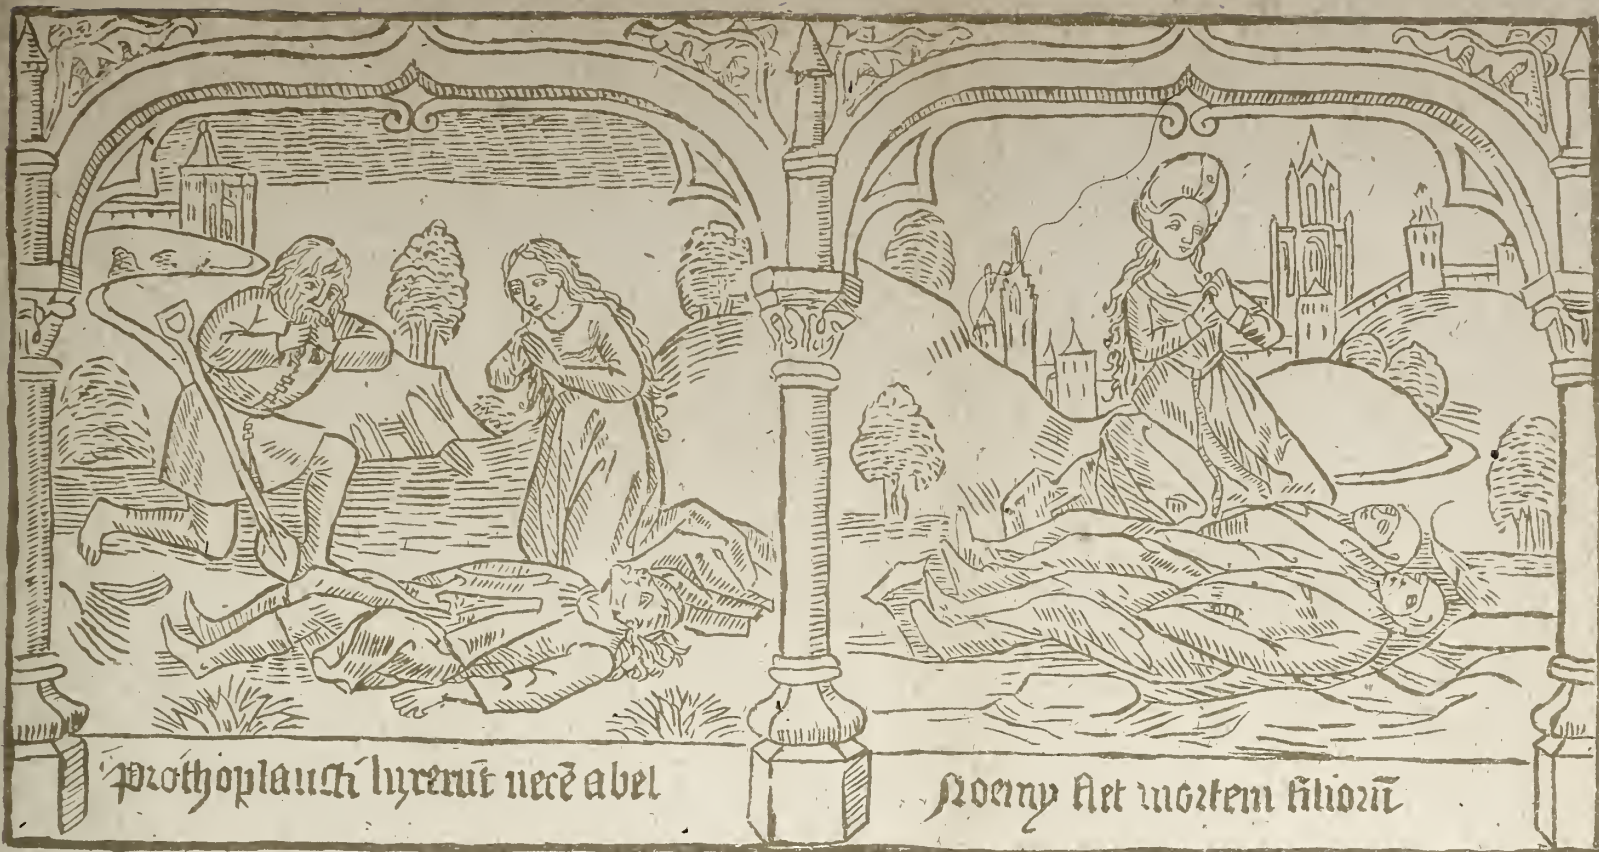 prothoplausti luxerūt necē abel
Noemy flet mortem filiorū